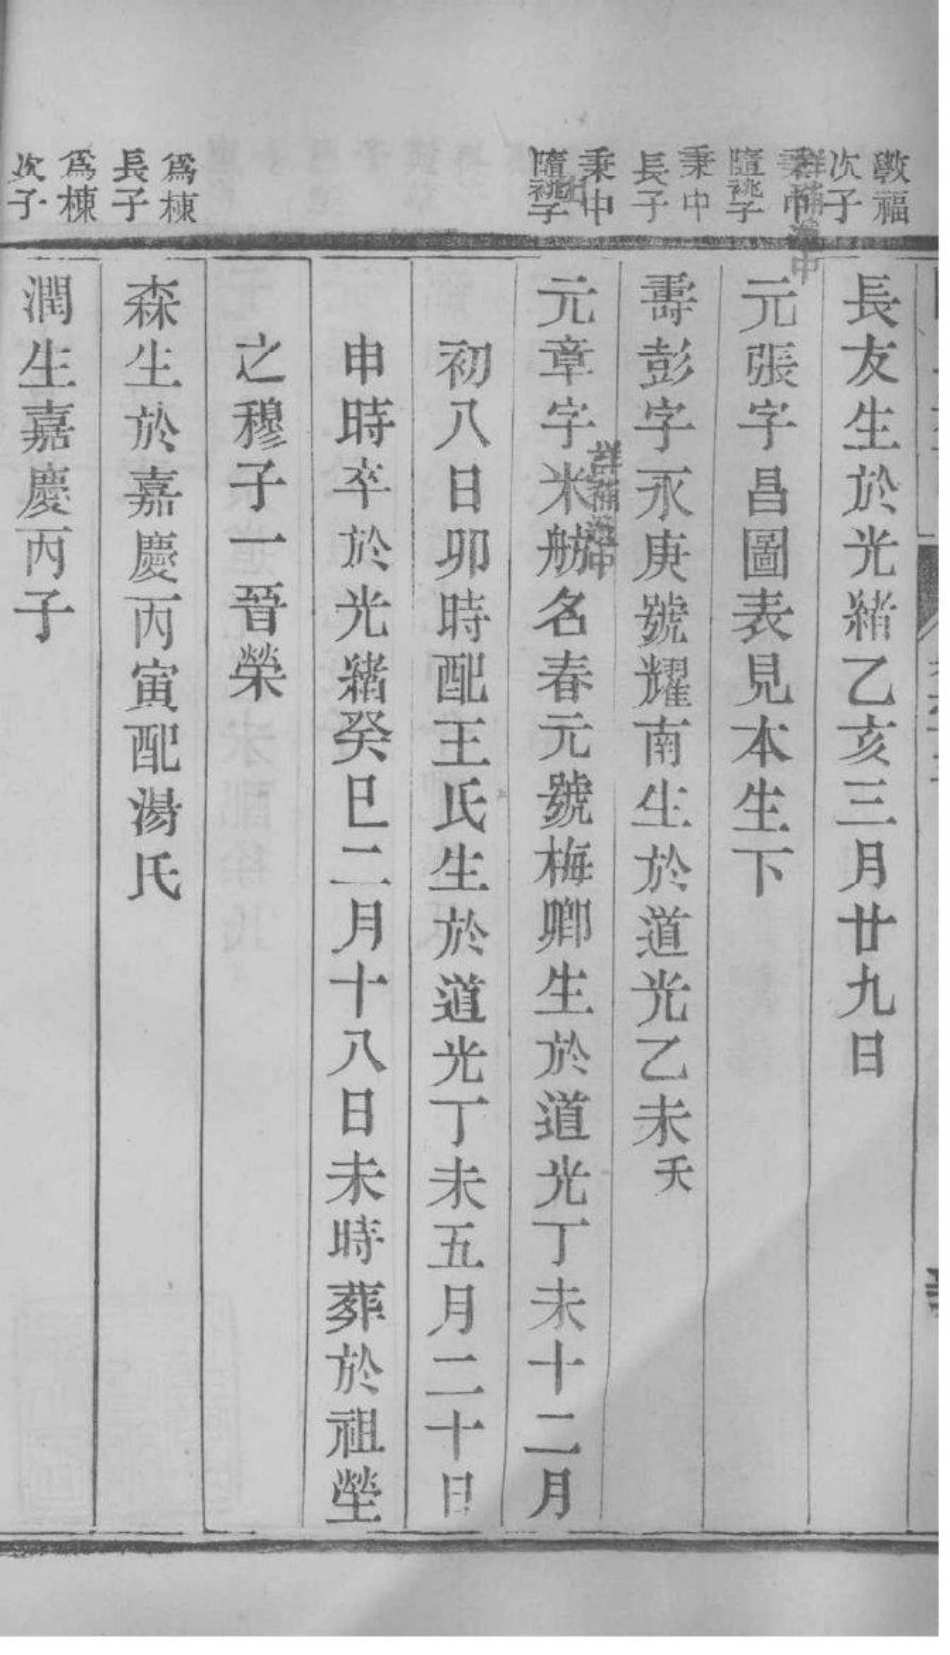 斆福
次子
長友生於光緒乙亥三月廿九日
秉中
隨祧子
詳補遺中
元張字昌圖表見本生下
秉中
長子
壽彭字永庚號耀南生於道光乙未夭
秉中
隨祧子
元章字米舫名春元號梅卿生於道光丁未十二月
詳補遺中
初八日卯時配王氏生於道光丁未五月二十日
申時卒於光緒癸巳二月十八日未時葬於祖塋
之穆子一晉榮
爲棟
長子
森生於嘉慶丙寅配湯氏
爲棟
次子
潤生嘉慶丙子